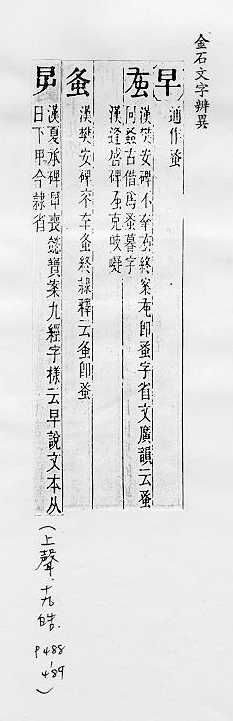 金石文字辨異
【早】
通作蚤
漢樊安碑不幸終案即蚤字省文廣韻云蚤
同古借爲蚤暮字
漢逢盛碑克岐嶷
漢樊安碑不幸終隸釋云即蚤
漢夏承碑喪懿寶案九經字樣云早說文本从
日下甲今隸省
(上聲.十九皓.
P488,
489)